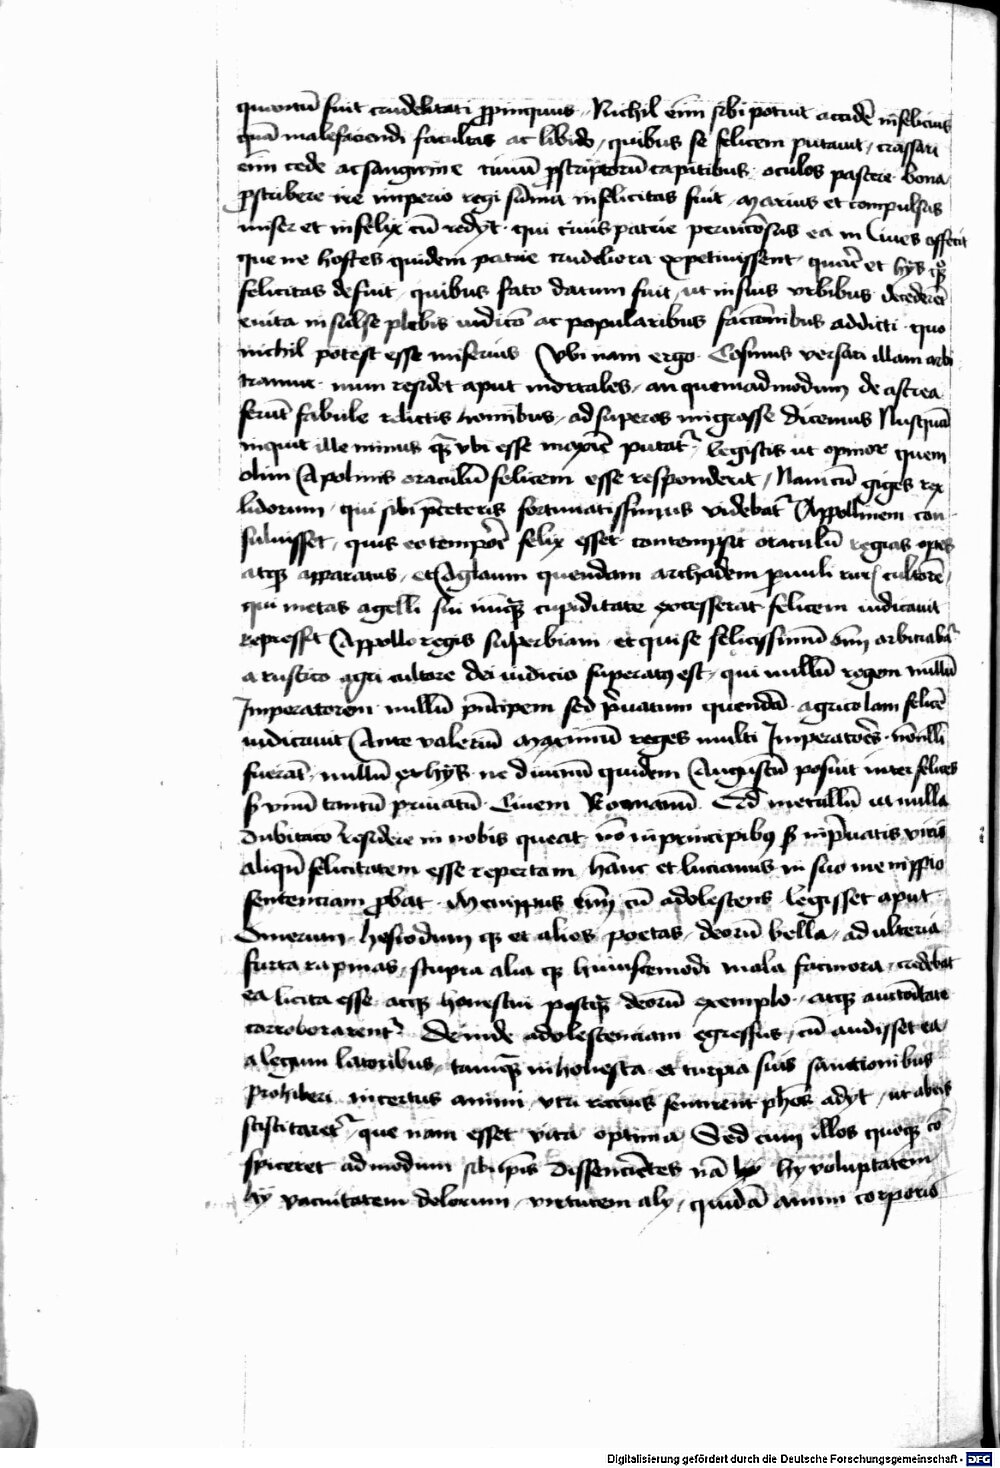 quantū fuit crudelitati ꝓpinquus . Nichil enī sibi potuit accidē infelicius
quā malefaciendi facultas ac libido , quibus se felicem putauit , crassari
enī cede ac sanguine ciuiū ꝓscriptorū capitibus . oculos pascere bona
ꝓscribere ire imperio regi sūma infelicitas fuit . Marius et compulsus
miser et infelix cū redyt . qui ciuis patrie perniciosus ea in Ciues effecit
que ne hostes quidem patrie crudeliora expetiuissent . quare et hys qȝ
felicitas defuit . quibus fato datum fuit ut in suis vrbibus decederēt
e uita insulse plebis iudicō ac popularibus factionibus addicti . quo
nichil potest esse miserius Vbi nam ergo . Cosimus versari illam arbi
tramur . num residet aput mortales , an quemadmodum de astrea
ferūt fabule relictis hominibus , ad superos migrasse dicemus Nusquā
inquit ille minus qȝ vbi esse maxīe putatr̄ legistis ut opinor quem
olim Apolinis oraculū felicem esse responderit , Nam cū giges rex
lidorum , qui sibi p̄ ceteris fortunatissimus videbatr̄ Appollinem con
suluisset , quis eo tempore felix esset contempsit oraculū regias opes
atqȝ apparatus , et Aglaum quendam archadem paruuli ruri cultorē ,
qui metas agelli sui nūqȝ cupiditate excesserat felicem iudicauit
repressit Appollo regis superbiam et qui se felicissimū oīm arbitrabar̄
a rustico agri cultore dei iudicio superatus est , qui nullū regem nullū
Imperatorem . nullū pn̄cipem sed p̄uatum quendā . agricolam felicē
iudicauit Ante valeriū maximū reges multi Imperatores . nōnulli
fuerāt , nullū ex hys . ne diuinū quidem Augustū posuit inter felices
sȝ vnū tantū priuatū . Ciuem Romanū metellū ut nulla
dubitacō residere in nobis queat nō in principibȝ sȝ in p̄uatis viris
aliquā felicitatem esse repertam , hanc et lucianus in suo menippio
sentenciam ꝓbat . Menippus enī cū adolescens legisset aput
Omerum , hesiodum qȝ et alios poetas , deorū bella , adulteria
furta rapinas , stupra alia qȝ huiuscemodi mala facinora , credebat
ea licita esse . atqȝ honesta postqȝ deorū exemplo , atqȝ auctoritate
corroborarentr̄ Deinde adolescenciam egressus , cū audisset ea
a legum latoribus , tamqȝ inhonesta et turpia suis sanctionibus
prohiberi incertus animi , vtri rectius sentirent phōs adyt , ut ab eis
scistitaretr̄ , que nam esset vita optima Sed cum illos quoqȝ cō
spiceret admodum sibi ipīs dissencientes nā hy voluptatem
hy vacuitatem dolorum , virtutem aly , quidā animi corporis
Digitalisierung gefördert durch die Deutsche Forschungsgemeinschaft - DFG